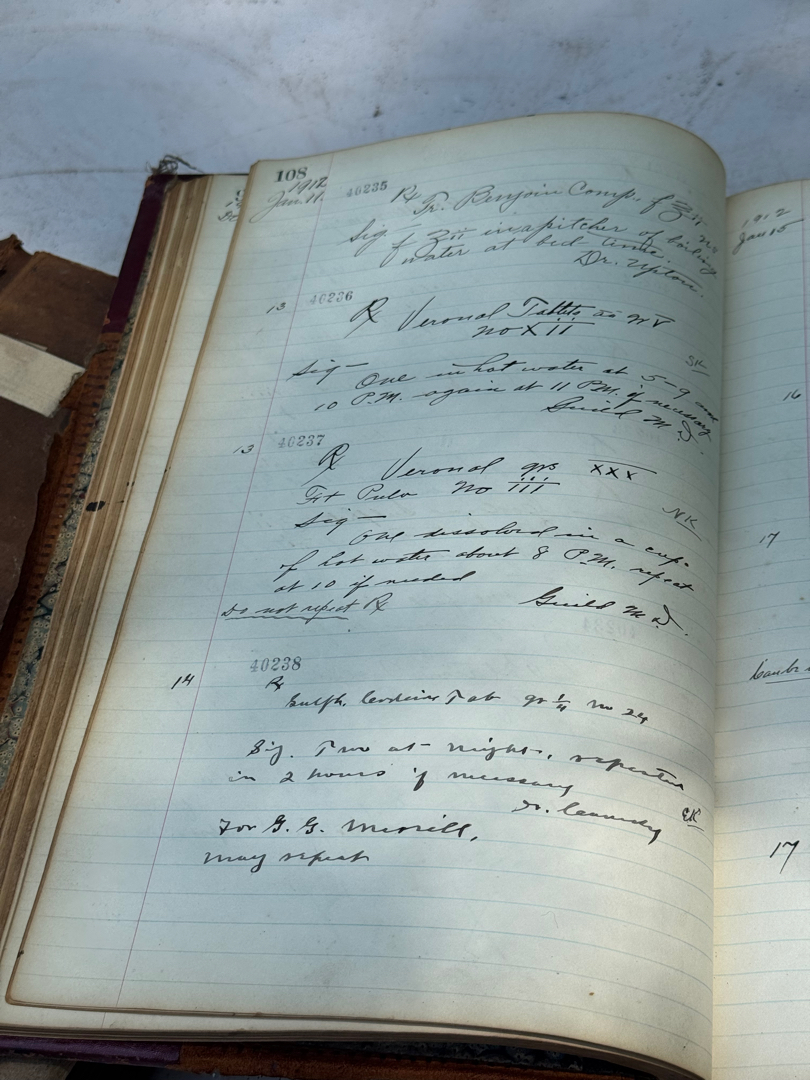 108
1912
Jan. 11. 40235 Rx Tr. Benzoin Comp. f ℥
Sig. f ʒii in a pitcher of boiling
water at bed time.
Dr. Upton.
13 40236
Rx Veronal Tablets aa gr V
no XII
Sig— One in hot water at
10 P.M. again at 11 P.M. if necessary
Guild M.D.
13 40237
Rx Veronal grs XXX
Ft Pulv No III
NK
Sig—
One dissolved in a cup
of hot water about 8 P.M. repeat
at 10 if needed
Do not repeat Rx Guild M.D.
14 40238
Rx
Sulph. Codeine Tab gr ¼ no 24
Sig. Two at night,
in 2 hours if necessary
Dr.
For G. G. Merrill,
may repeat
1912
Jan 15
16
17
17